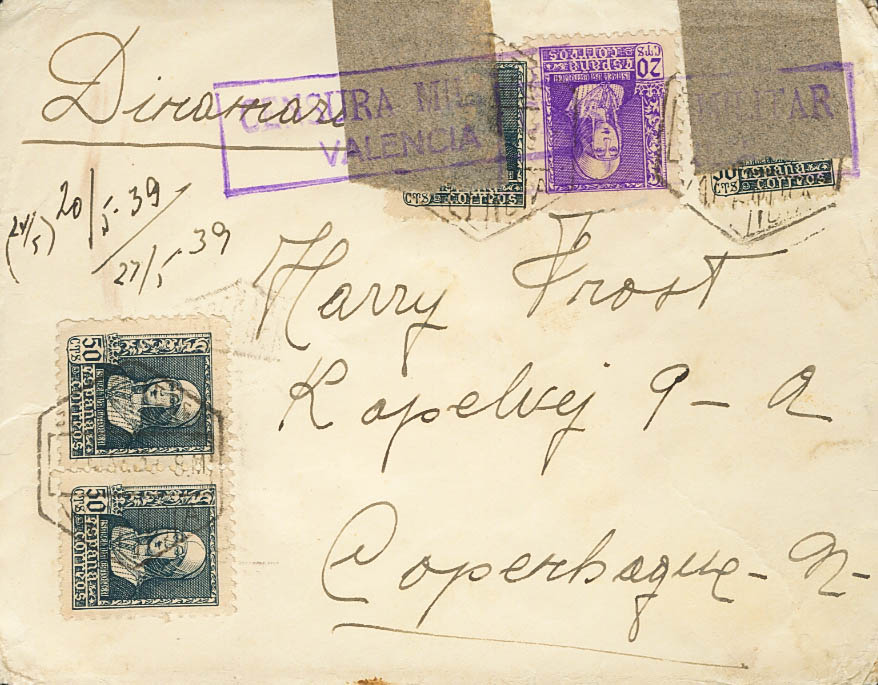 Dinamar
CENSURA MIL
VALENCIA
MILITAR
CTS Correos
20 CTS
España
CORREOS
30 España
CTS Correos
(24/5) 20/5-39
27/5 39
Harry Frost
Kapelvej 9 - A
Copenhague - N -
50 CTS
España
Correos
50 CTS
España
Correos